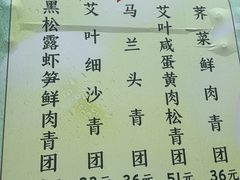 荠菜鲜肉青团
36元
艾叶咸蛋黄肉松青团
51元
马兰头青团
36元
艾叶细沙青团
黑松露虾笋鲜肉青团